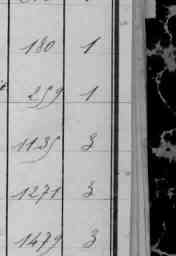 180 1
259 1
1135 3
1271 3
1479 3